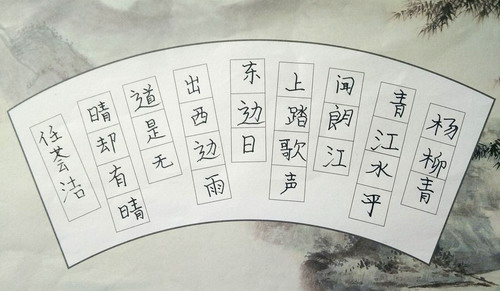 杨柳青
青江水平
闻朗江
上踏歌声
东边日
出西边雨
道是无
晴却有晴
任荟洁